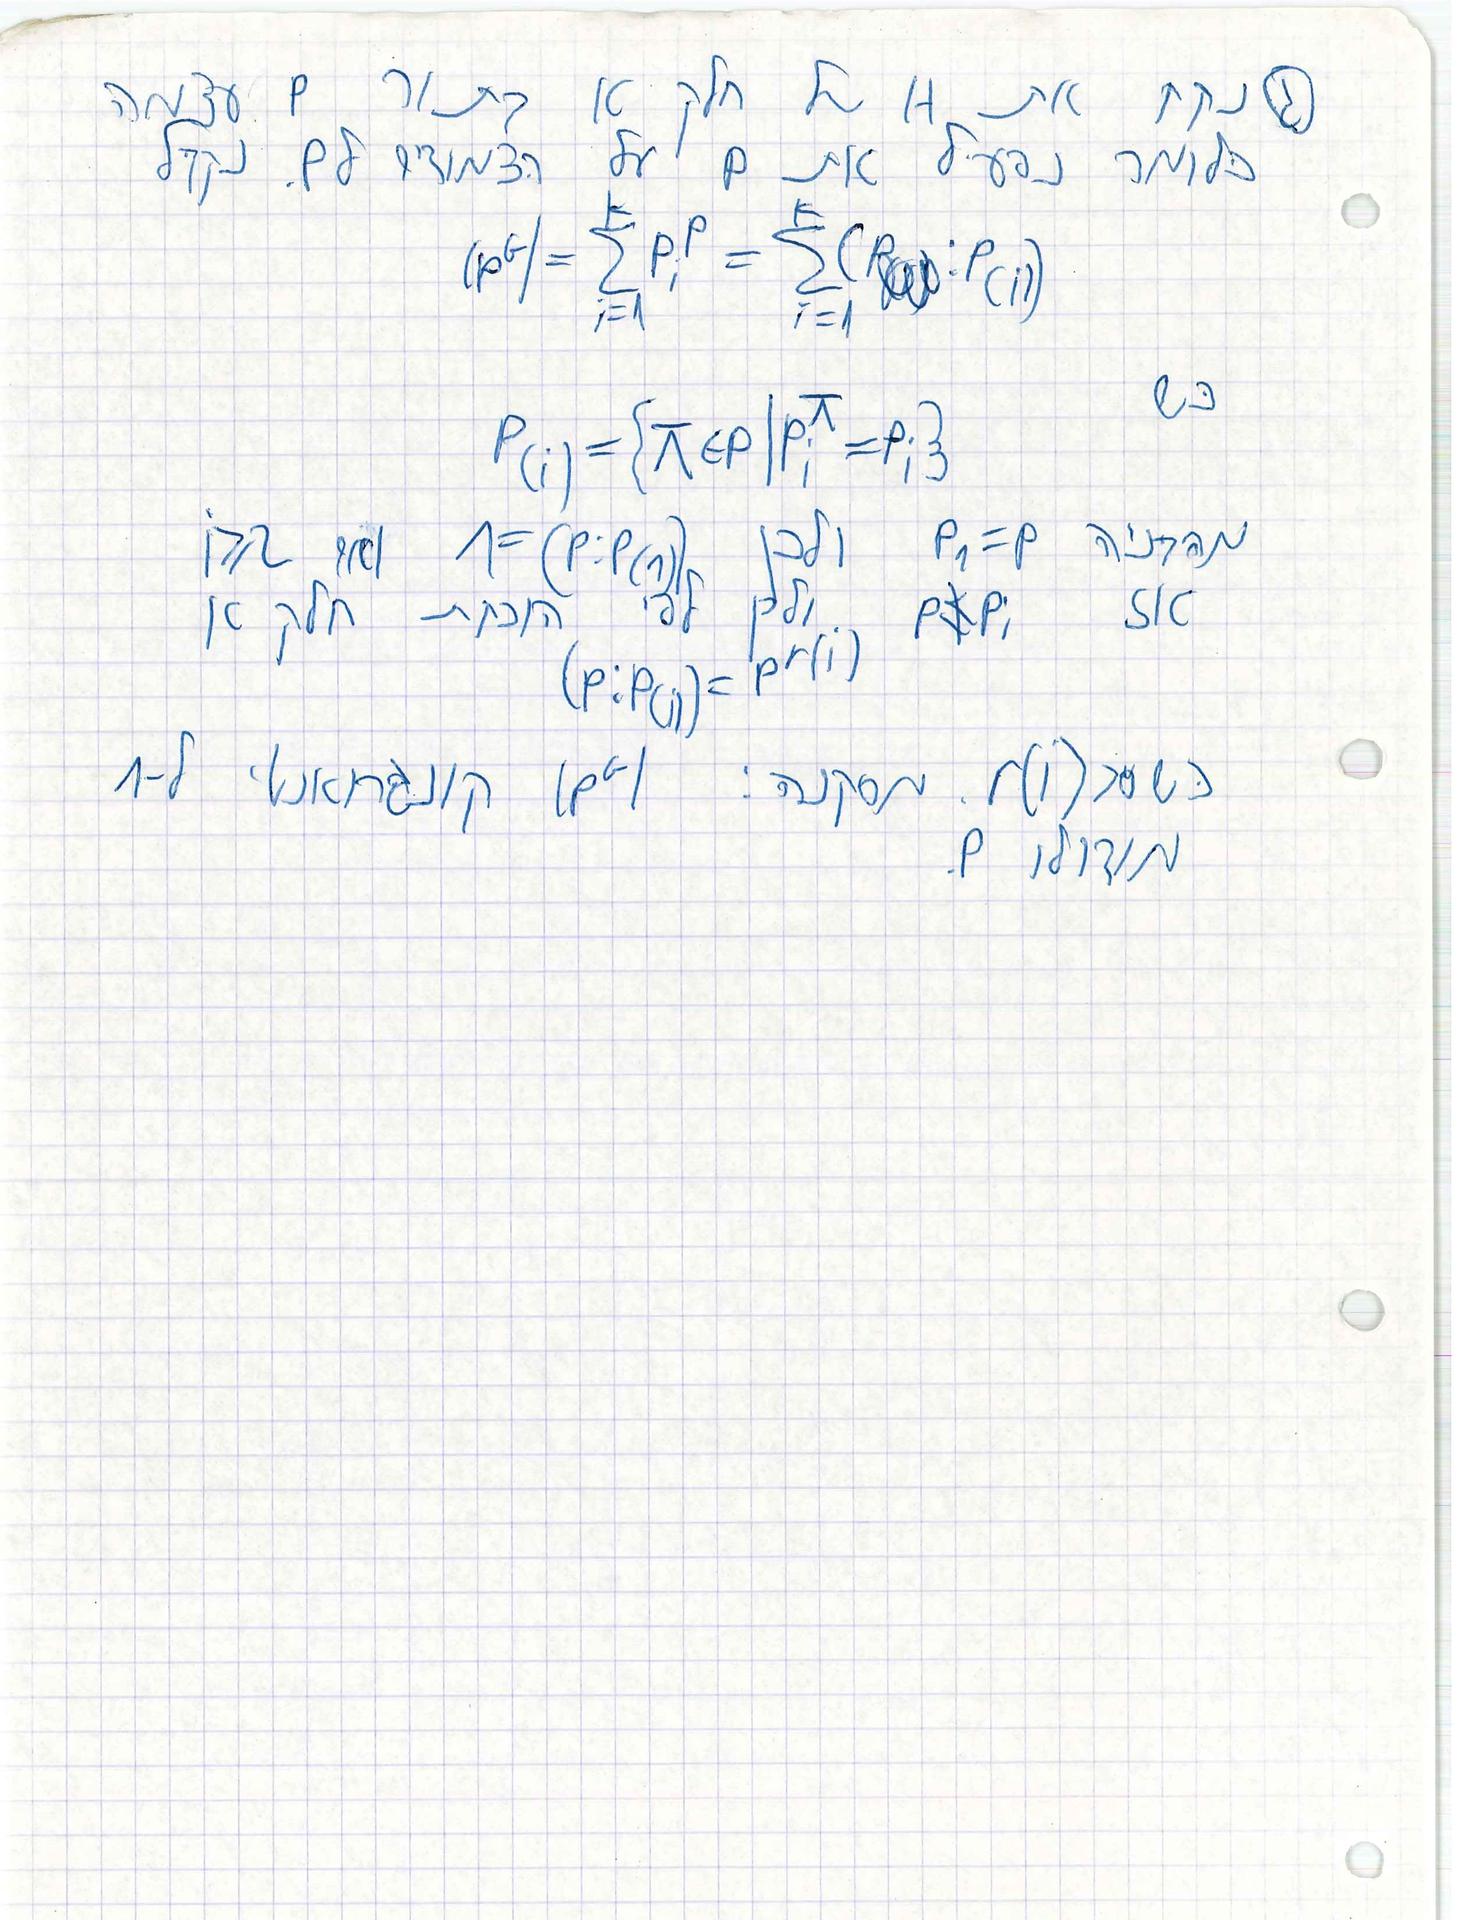 ג נקח את H של חלק א בתור P עצמה
כלומר נפעיל את P על הצמודים לP. נקבל
|P^G| = \sum_{i=1}^{k} P_i^P = \sum_{i=1}^{k} (P : P_{(i)})
כש
P_{(i)} = {π ∈ P | P_i^π = P_i}
מהבניה P_1 = P ולכן 1 = (P : P_{(1)}) ואם i>1
אז P ≠ P_i ולכן לפי הוכחת חלק א
(P : P_{(i)}) = p^{r(i)}
r(i). מסקנה: |P^G| קונגרואנטי ל-1
מודולו P.